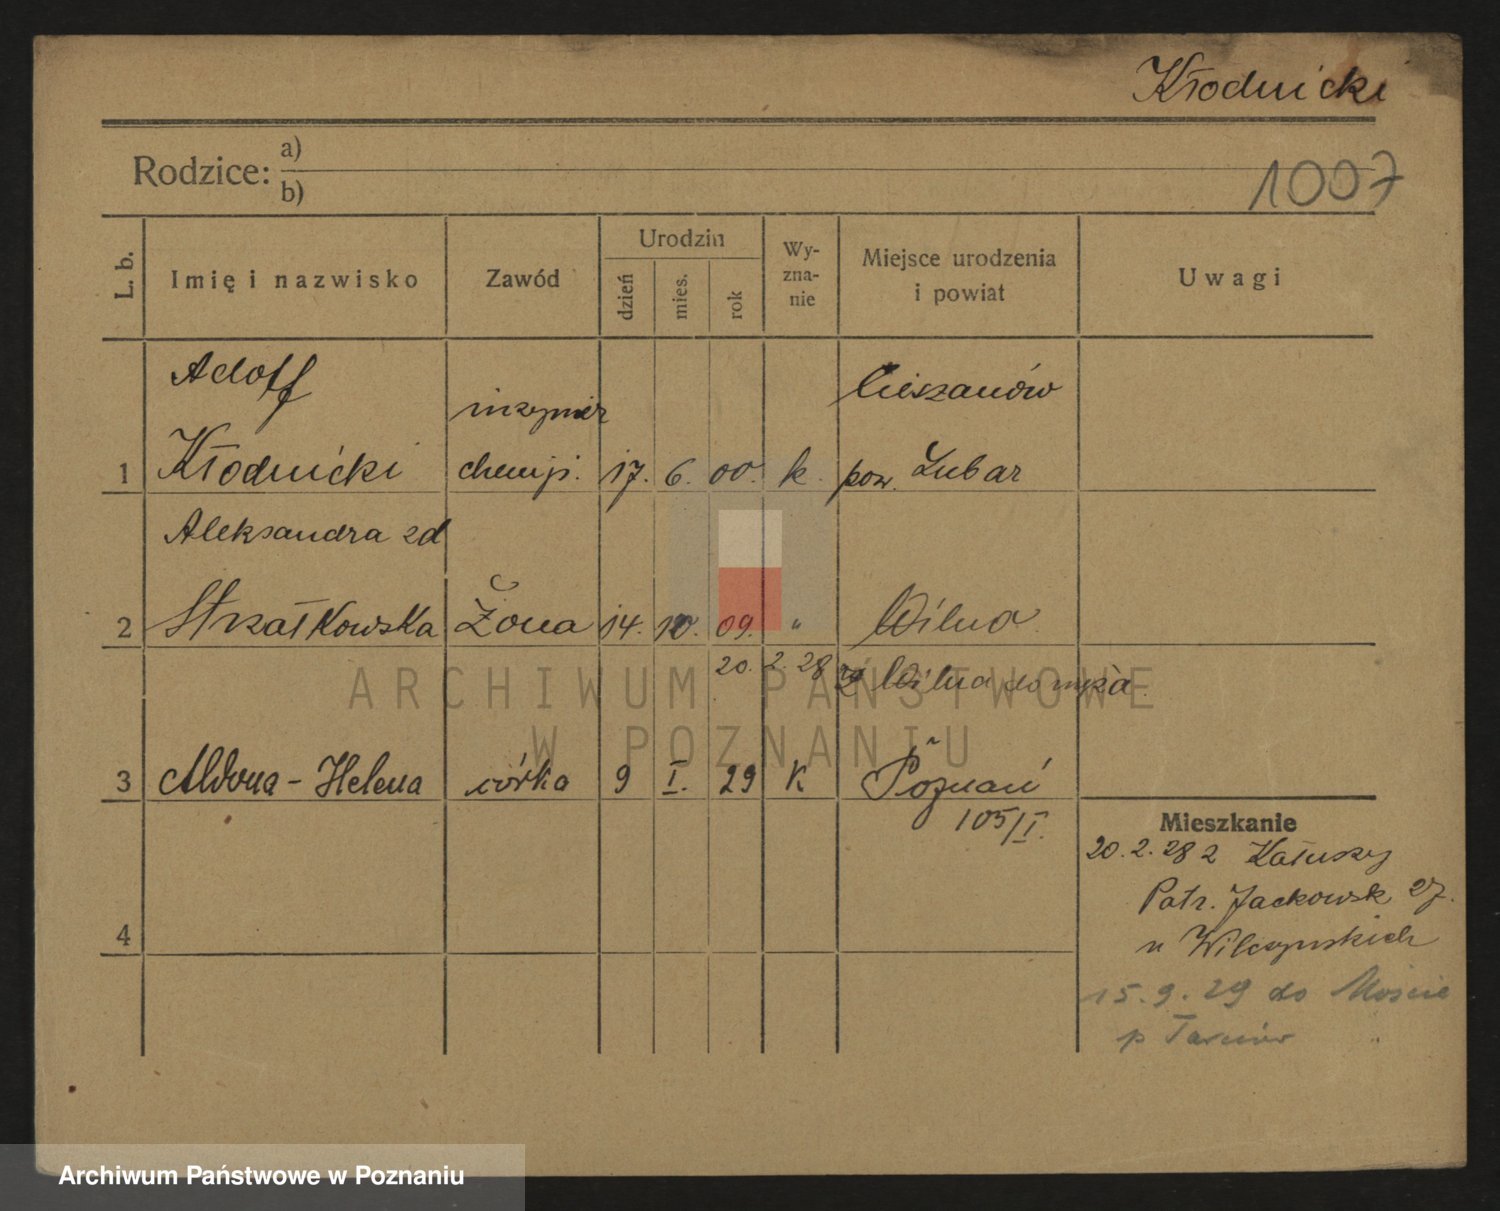 Kłodnicki
Rodzice: a)
b)
1007
L. b. Imię i nazwisko Zawód Urodzin dzień mies. rok Wy-zna-nie Miejsce urodzenia i powiat Uwagi
Adolf inżynier Cieszanów
1 Kłodnicki chemji. 17. 6. 00. k. pow. Lubar
Aleksandra zd
2 Strzałkowska Żona 14. 10. 09. " Wilno
20. 2. 28 z Wilna do męża
3 Aldona - Helena córka 9 I. 29 K Poznań
105/I.
Mieszkanie
20. 2. 28 z Kałuszy
Patr. Jackowsk 27.
u Wilczyńskich
4
15. 9. 29 do Moście
p Tarnów
ARCHIWUM PAŃSTWOWE
W POZNANIU
Archiwum Państwowe w Poznaniu